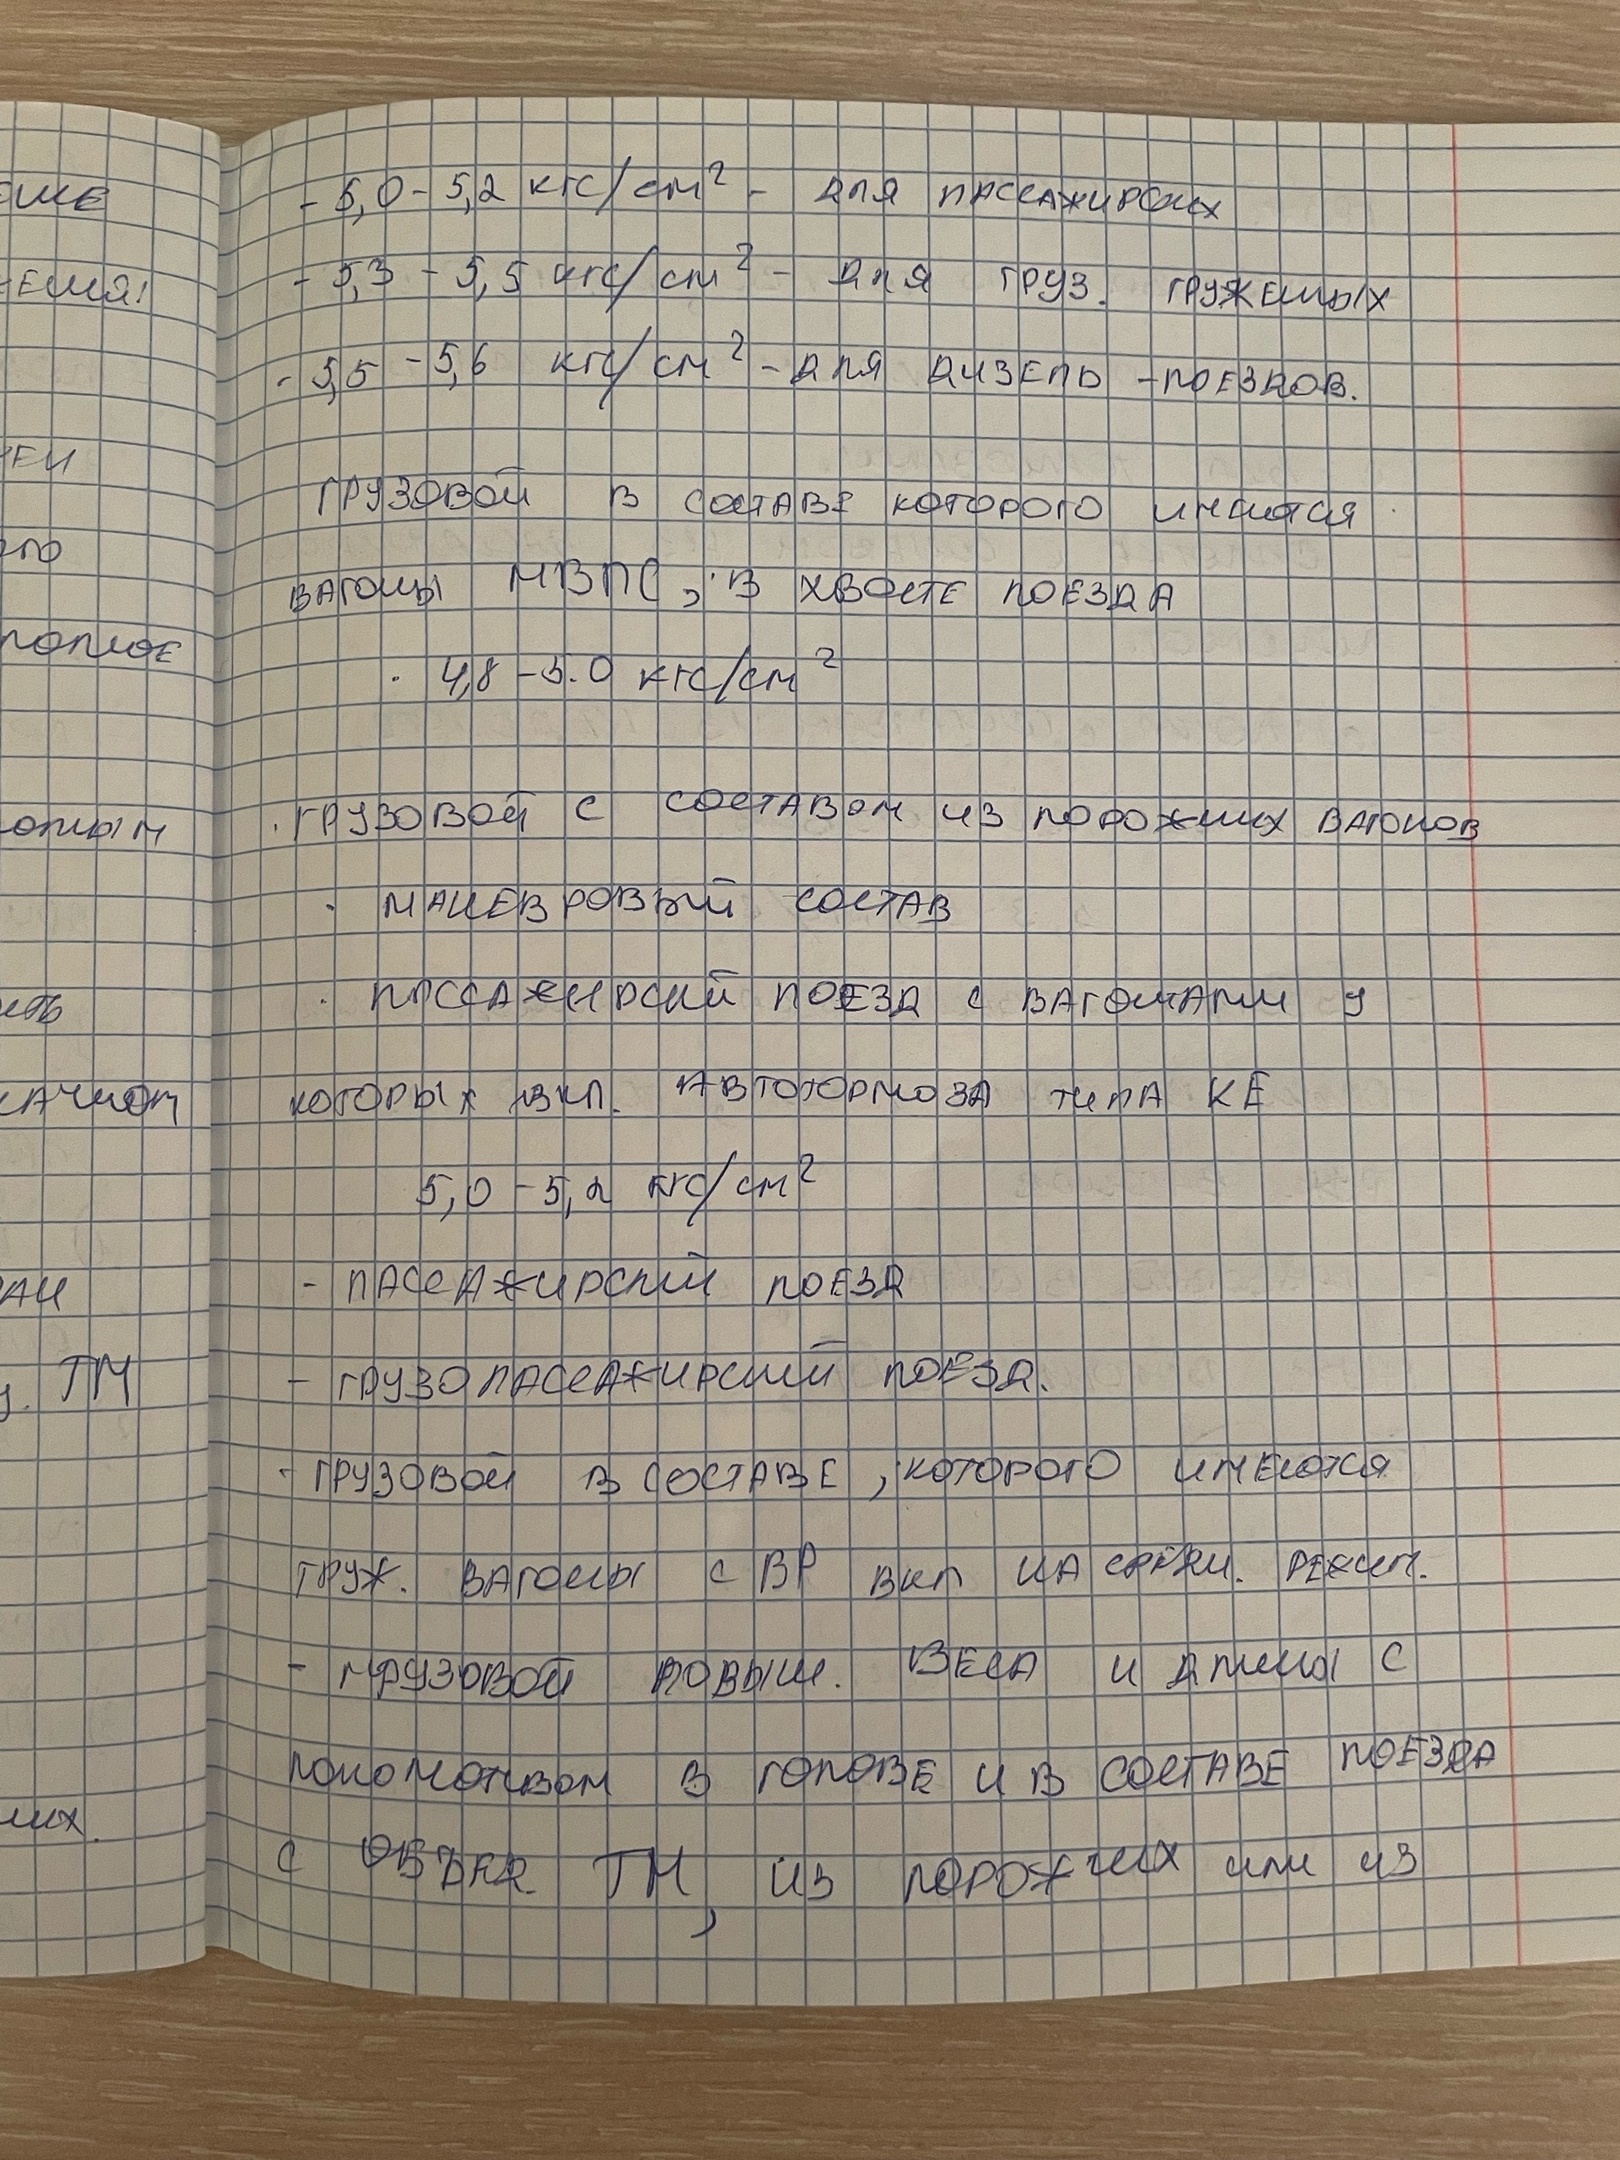 - 5,0 - 5,2 кгс/см² - для пассажирских
- 5,3 - 5,5 кгс/см² - для груз. груженых
- 5,5 - 5,6 кгс/см² - для дизель - поездов.
Грузовой в составе которого имеются
вагоны МВПС, в хвосте поезда
· 4,8 - 5.0 кгс/см²
· Грузовой с составом из порожних вагонов
· маневровый состав
· пассажирский поезд с вагонами у
которых вкл. автотормоза типа КЕ
5,0 - 5,2 кгс/см²
- пассажирский поезд
- грузопассажирский поезд.
- грузовой в составе, которого имеются
груж. вагоны с ВР вкл на средн. режим.
- грузовой повыш. веса и длины с
локомотивом в голове и в составе поезда
с объед. ТМ, из порожних или из